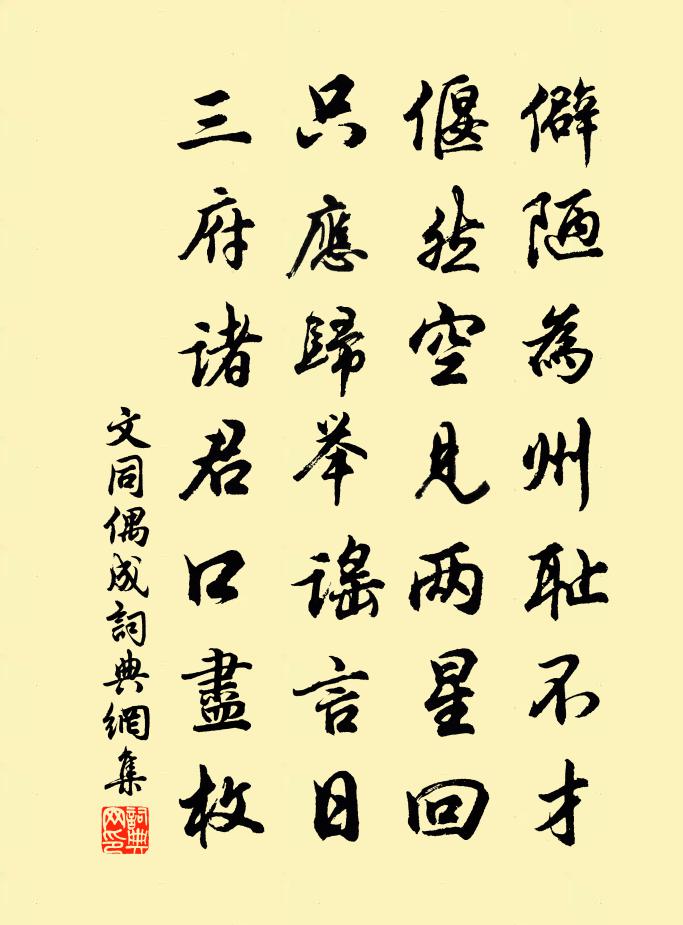 僻陋為州耻不才
偃然空見两星回
只應歸举謠言日
三府諸君口盡枚
文同偶成詞典網集
詞典
网印